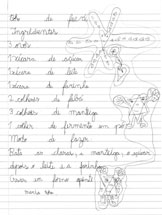 Bolo de
Ingredientes
3 ovos
1 xícara de açúcar
1 xícara de leite
1 xícara de farinha
2 colheres de
3 colheres de manteiga
1 colher de fermento em pó
Modo de fazer
Bata as claras, a manteiga, o açúcar
depois o leite e a farinha
forno quente